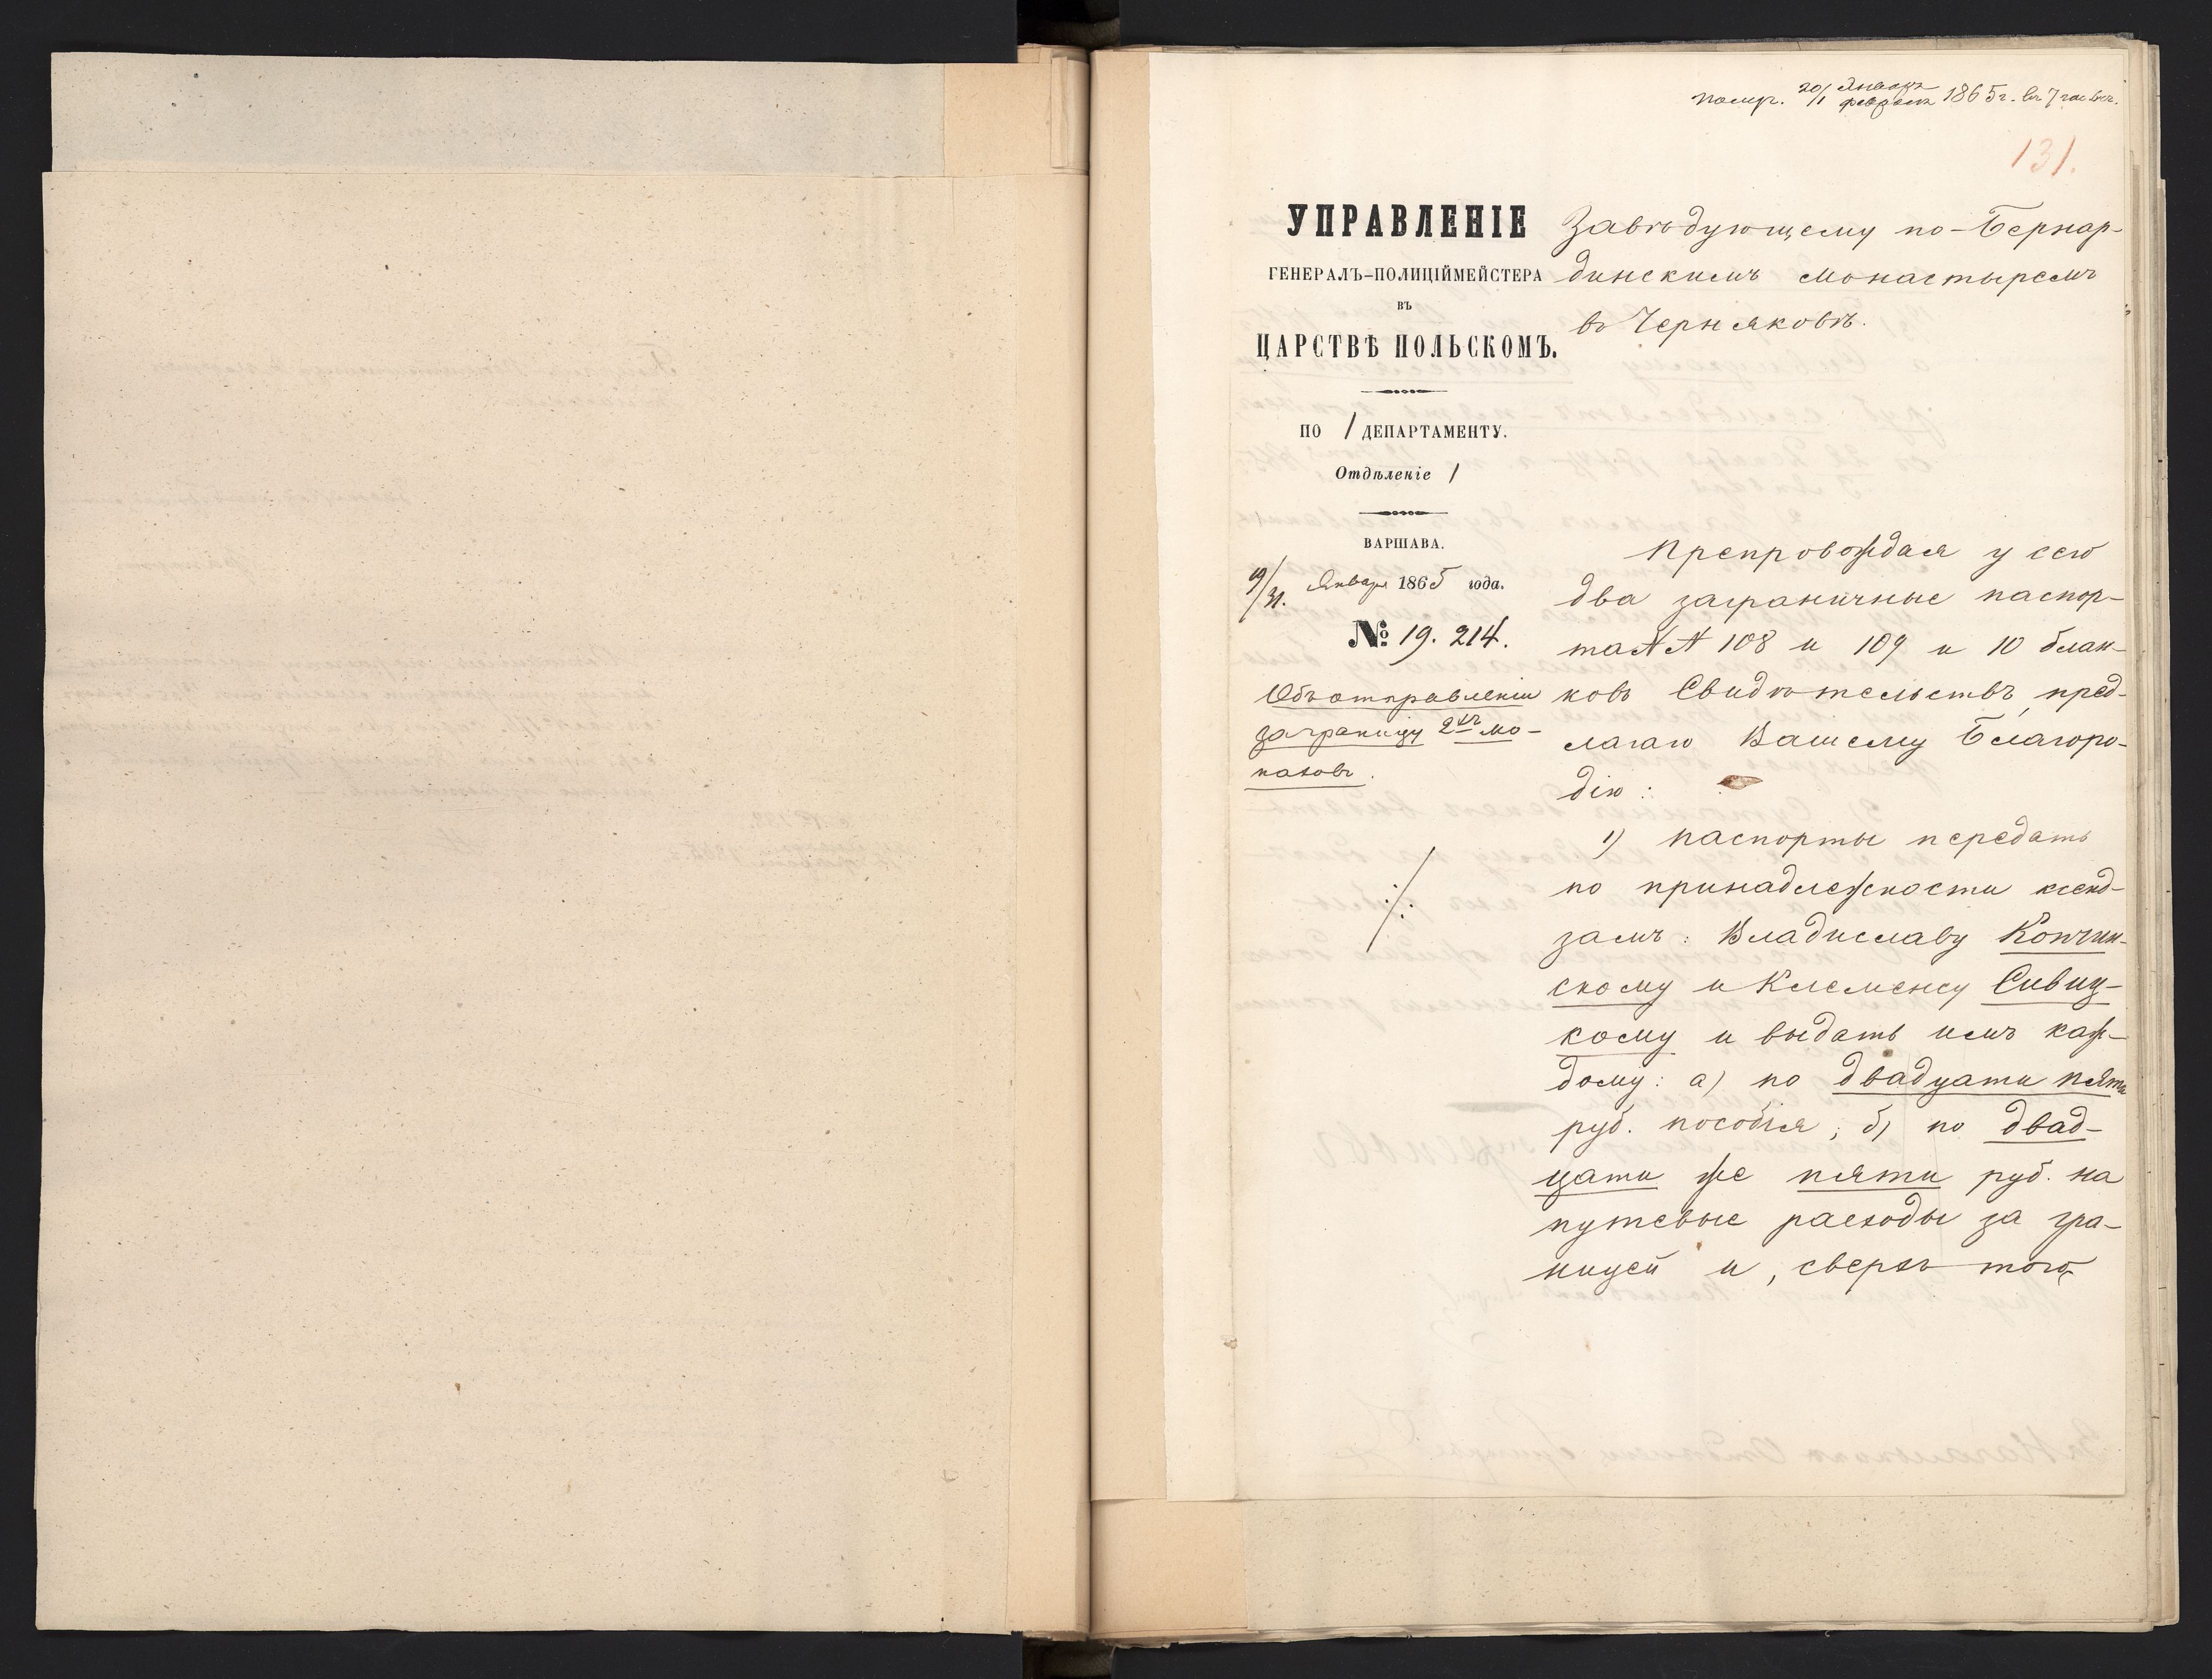 получ. 20/1 Января/февраля 1865 г. въ 7 час. веч.
131.
УПРАВЛЕНІЕ
ГЕНЕРАЛЪ-ПОЛИЦІЙМЕЙСТЕРА
ВЪ
ЦАРСТВѢ ПОЛЬСКОМЪ.
ПО 1 ДЕПАРТАМЕНТУ.
Отдѣленіе 1
ВАРШАВА.
19/31. Января 1865 года.
№ 19.214.
Объ отправленіи
заграницу 2хъ мо-
наховъ.
Завѣдующему по-Бернар-
динскимъ монастыремъ
въ Черняковѣ.
Препровождая у сего
два заграничные паспор-
та №№ 108 и 109 и 10 блан-
ковъ Свидѣтельствъ, пред-
лагаю Вашему Благоро-
дію:
1) паспорты передать
по принадлежности ксенд-
замъ: Владиславу Кончин-
скому и Клеменсу Сивиц-
кому и выдать имъ каж-
дому: а) по двадцати пяти
руб. пособія; б) по двад-
цати же пяти руб. на
путевые расходы за гра-
ницей и, сверхъ того,